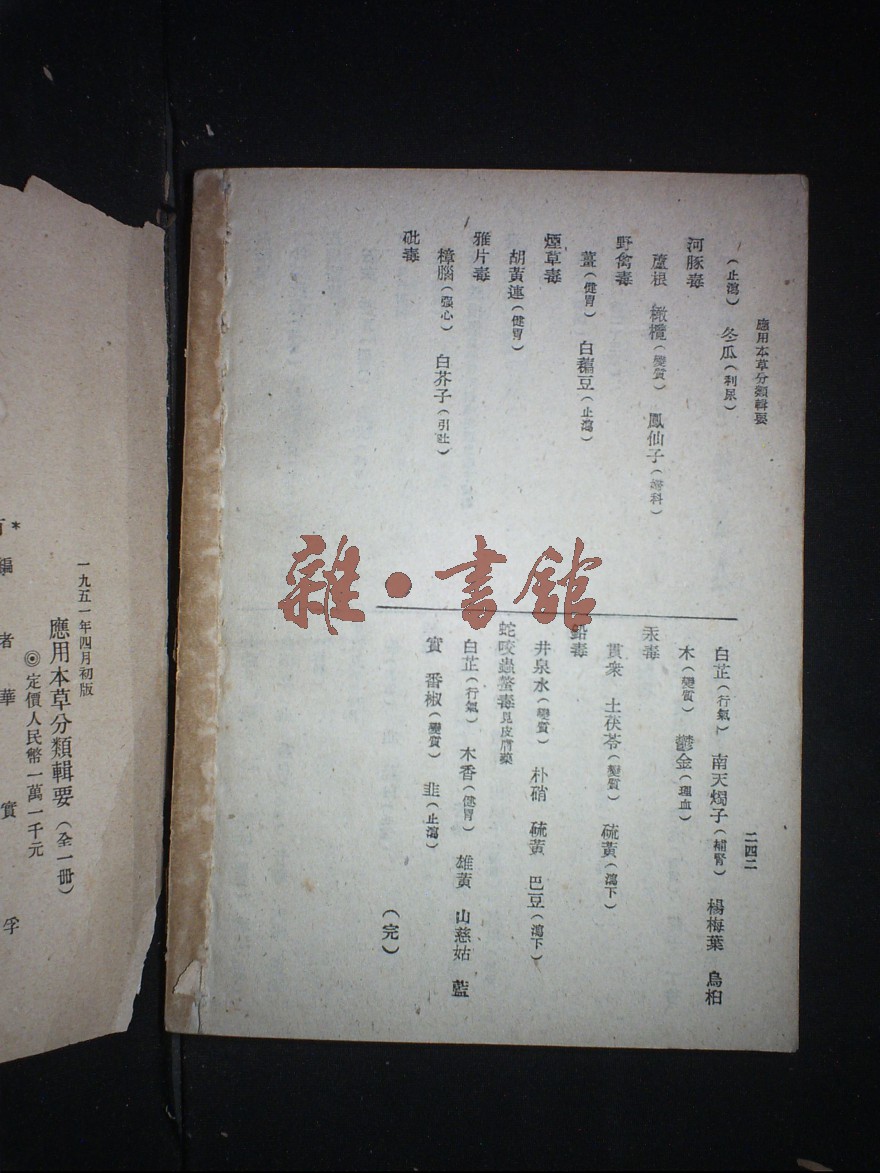 應用本草分類輯要
(止瀉) 冬瓜(利尿)
河豚毒
蘆根 橄欖(變質) 鳳仙子(婦科)
野禽毒
薑(健胃) 白藊豆(止瀉)
煙草毒
胡黃連(健胃)
雅片毒
樟腦(強心) 白芥子(引吐)
砒毒
二四二
白芷(行氣) 南天燭子(補腎) 楊梅葉 烏桕
木(變質) 鬱金(理血)
汞毒
貫衆 土茯苓(變質) 硫黃(瀉下)
鉛毒
井泉水(變質) 朴硝 硫黃 巴豆(瀉下)
蛇咬蟲螫毒見皮膚藥
白芷(行氣) 木香(健胃) 雄黃 山慈姑 藍
實 番椒(變質) 韭(止瀉)
(完)
雜·書館
一九五一年四月初版
應用本草分類輯要(全一冊)
◎定價人民幣一萬一千元
* 編者 華實孚